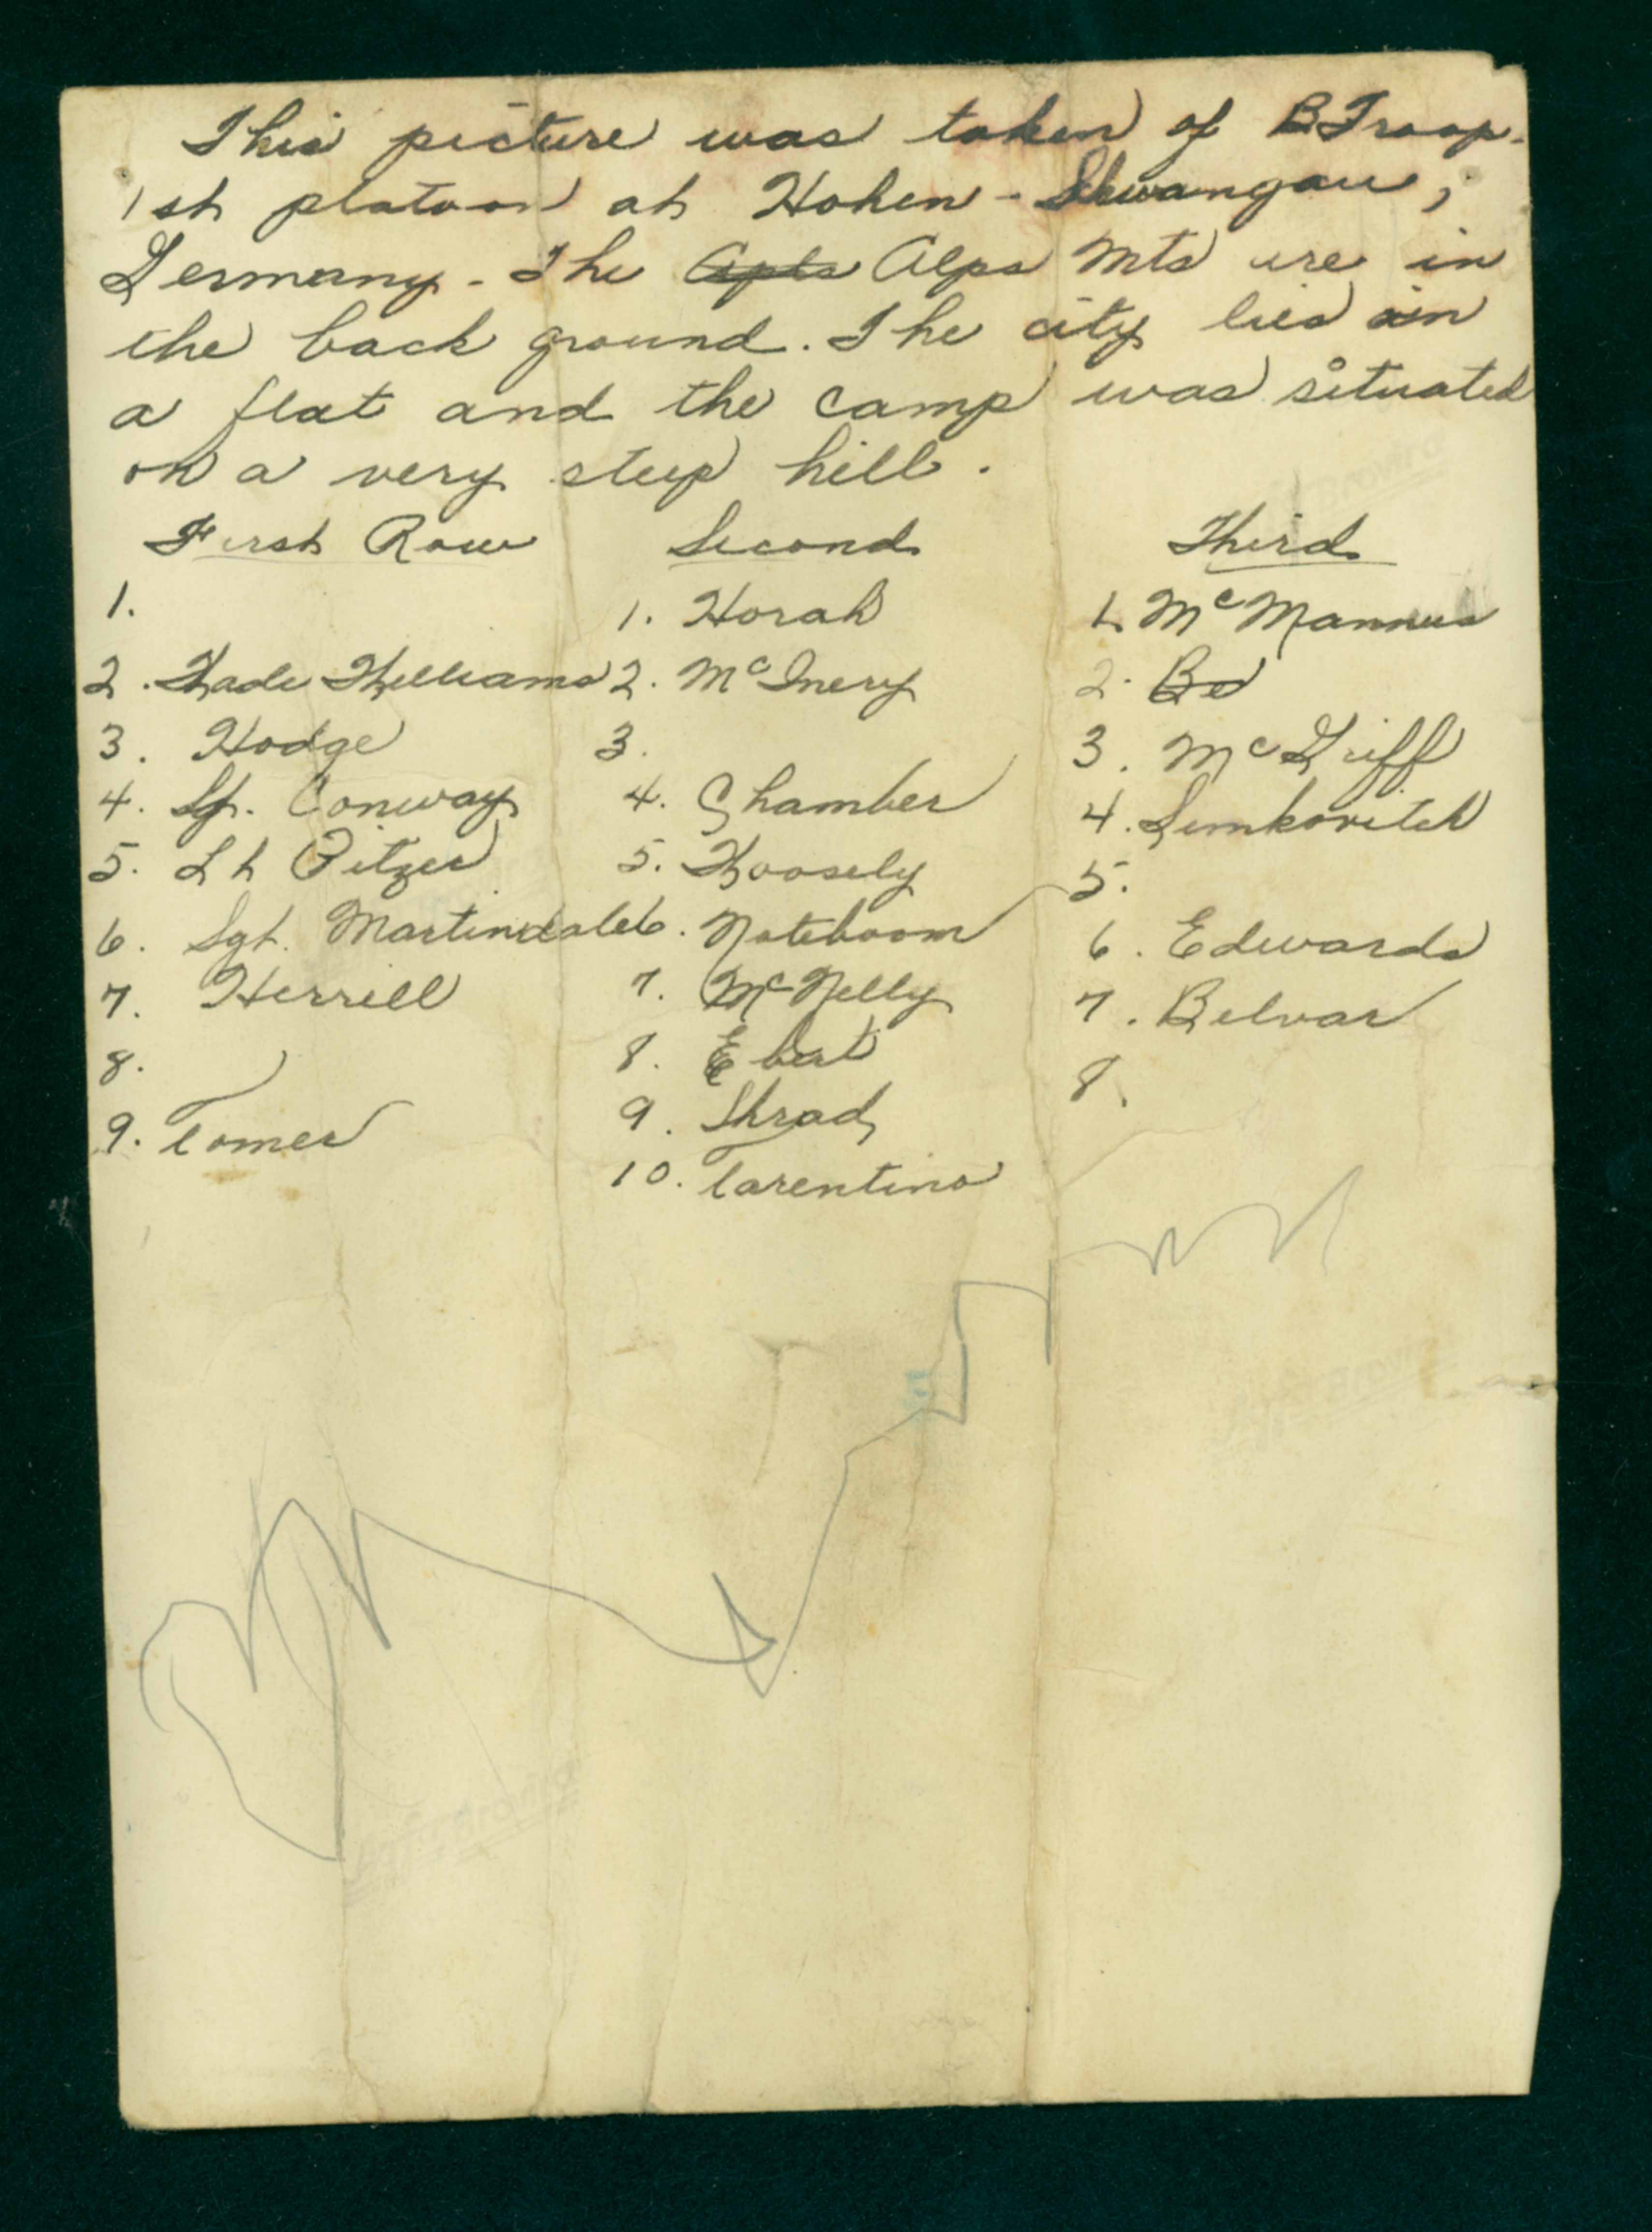 This picture was taken of B Troop.
1st platoon at Hohen - Shwangau,
Germany - The Apls Alps Mts are in
the back ground. The city lies in
a flat and the camp was situated
on a very steep hill.
First Row Second Third
1. 1. Horah 1. McMannus
2. Wade Williams 2. McInery 2. Be
3. Hodge 3. 3. McGriff
4. Sgt. Conway 4. Chamber 4. Simkovitch
5. Lt Pitzer 5. Woosely 5.
6. Sgt. Martindale 6. Noteboom 6. Edwards
7. Herrill 7. McNelly 7. Belvar
8. 8. Ebert 8.
9. Tomer 9. Shrad
10. Tarentino